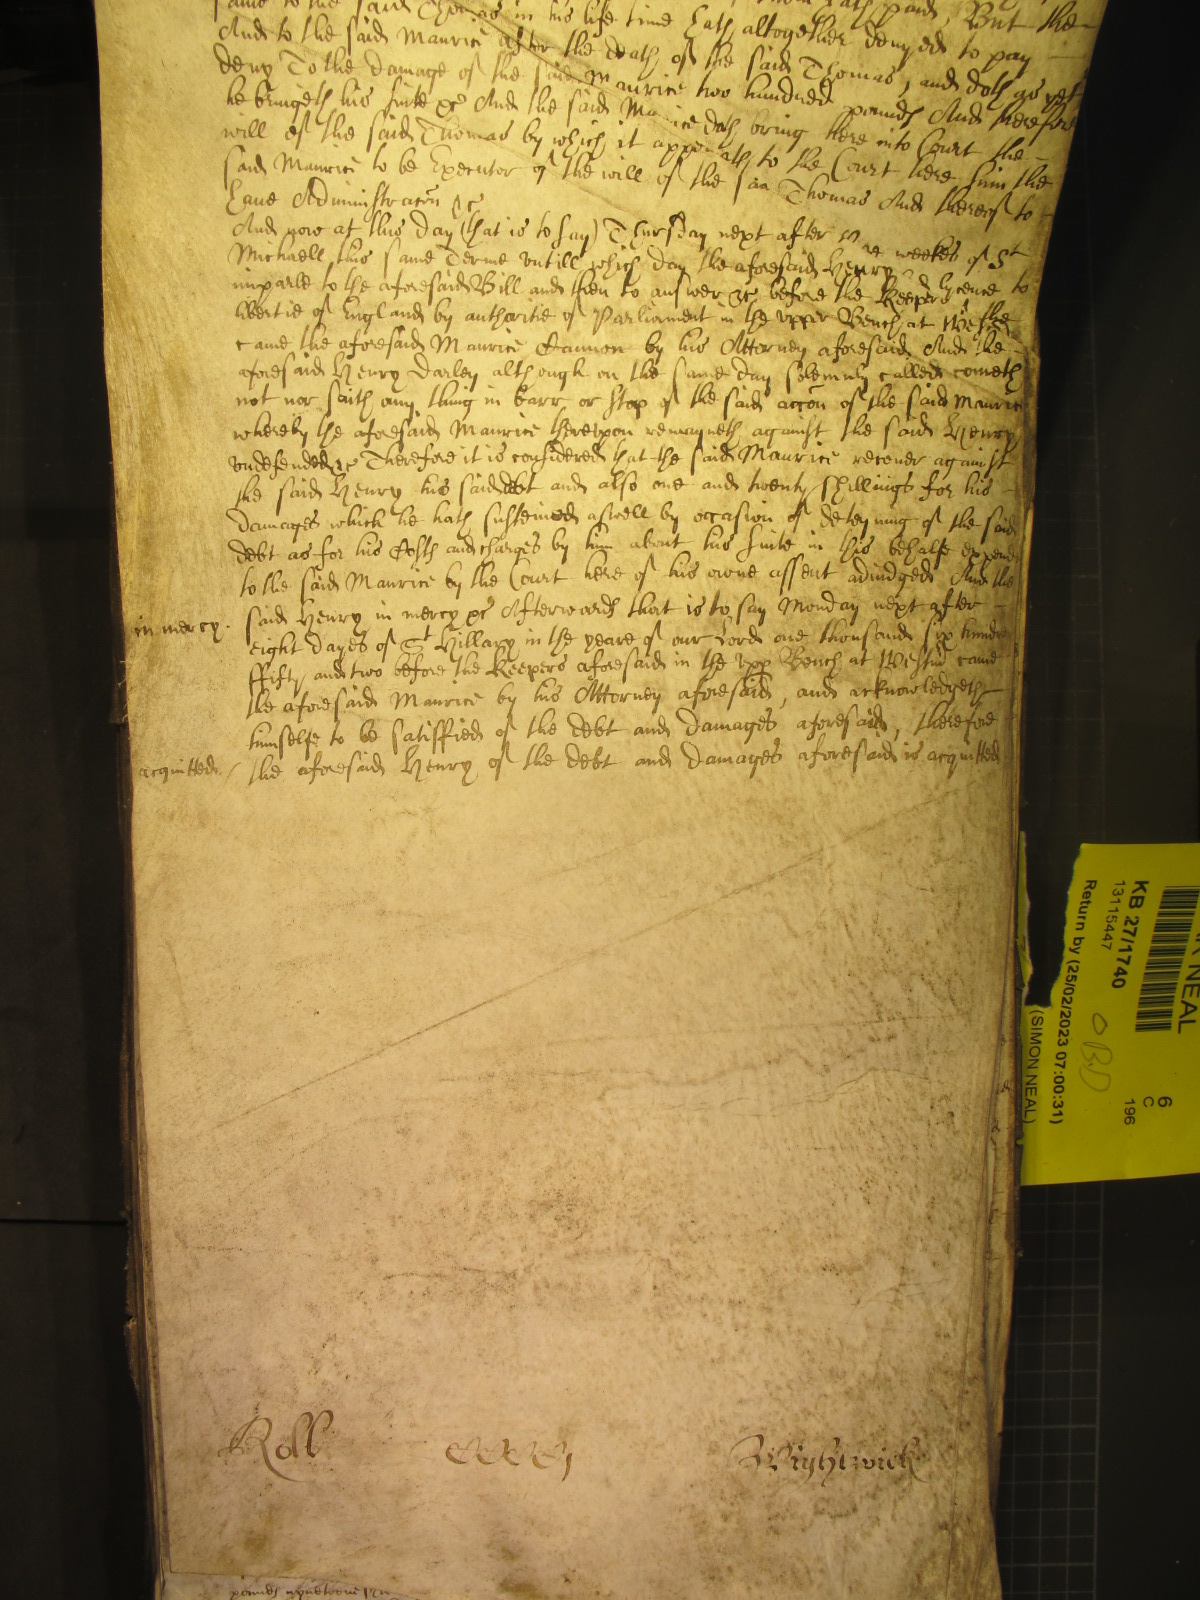 same to the said Thomas in his life time hath altogether denyed to pay But the
And to the said Maurice after the death of the said Thomas, and doth as yet
deny To the damage of the said Maurice two hundred pounds And therefore
he bringeth his suite &c And the said Maurice doth bring here into Court the
will of the said Thomas by which it appeareth to the Court here him the
said Maurice to be Executor of the will of the said Thomas And thereof to
have Administracon &c
And now at this day (that is to say) Thursday next after weekes of St
Michaell this same Terme untill which day the aforesaid Henry had lycence to
imparle to the aforesaid Bill and then to answer &c before the Keepers of the
libertie of England by authoritie of Parliament in the upper Bench at Westm
came the aforesaid Maurice Cannon by his Attorney aforesaid And the
aforesaid Henry Darley although on the same day solemnly called cometh
not nor saith any thing in barr or stop of the said accon of the said Maurice
whereby the aforesaid Maurice thereupon remayneth against the said Henry
undefended &c Therefore it is considered that the said Maurice recover against
the said Henry his said debt and also one and twenty shillings for his
damages which he hath susteined aswell by occasion of deteyning of the said
debt as for his Costs and charges by him about his suite in this behalfe expend
to the said Maurice by the Court here of his owne assent adiudged And the
in mercy. said Henry in mercy &c Afterwards that is to say Monday next after
eight dayes of St Hillary in the yeare of our Lord one thousand six hundred
ffifty and two before the Keepers aforesaid in the upp Bench at Westm came
the aforesaid Maurice by his Attorney aforesaid, and acknowledgeth
himselfe to be satisffied of the debt and damages aforesaid, therefore
acquitted / the aforesaid Henry of the debt and damages aforesaid is acquitted
Roll Wightwick
pounds nyneteene
NEAL
KB 27/1740
13115447
Return by (25/02/2023 07:00:31)
(SIMON NEAL)
6
C
196